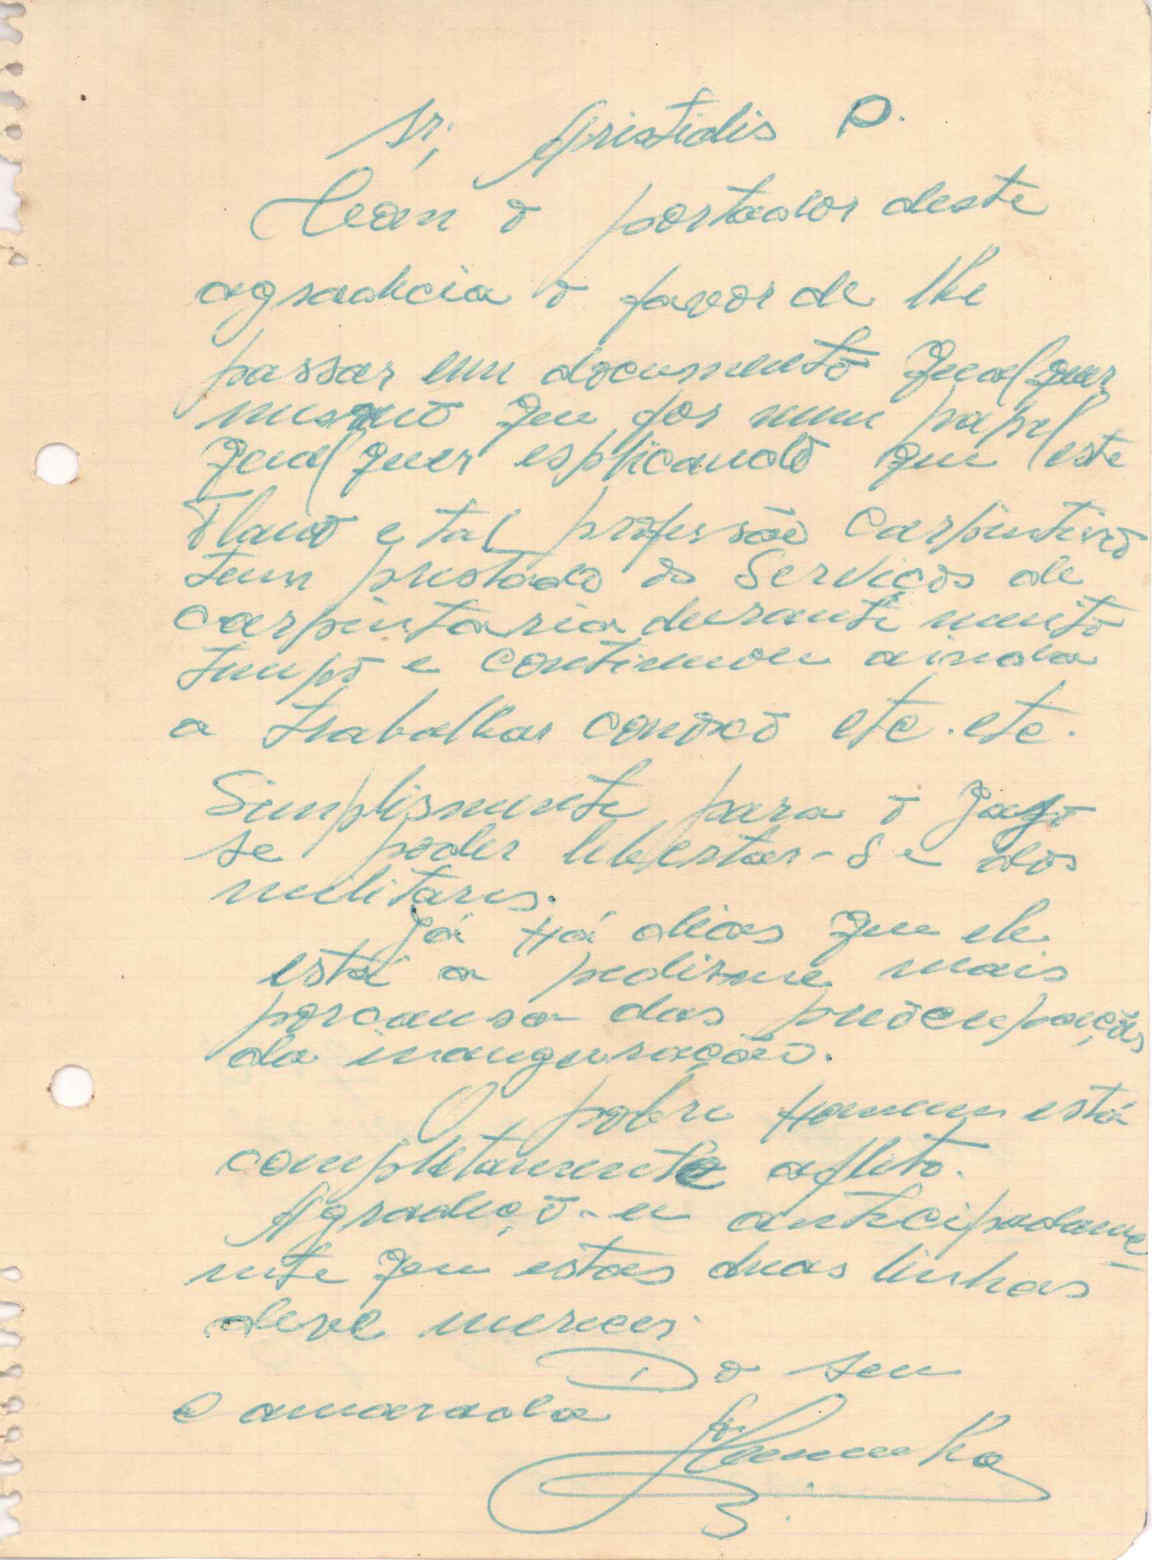 Sr; Aristidis P.
Com o portador deste
agradecia o favor de lhe
passar um documento qualquer
mesmo que for num papel
qualquer esplicando que este
flano e tal profissão Carpinteiro
tem prestado os Serviços de
carpintaria durante muito
tempo e continuou ainda
a trabalhar conoxco etc. etc.
Simplismente para o
se poder libertar-se dos
militares.
Já Há dias que ele
está a pedirme mais
porcausa das priocupações
da inauguração.
O pobre Homem está
completamente aflito.
Agradeço-eu antecipadame
nte que estas duas linhas
deve mercer.
Do seu
Camarada